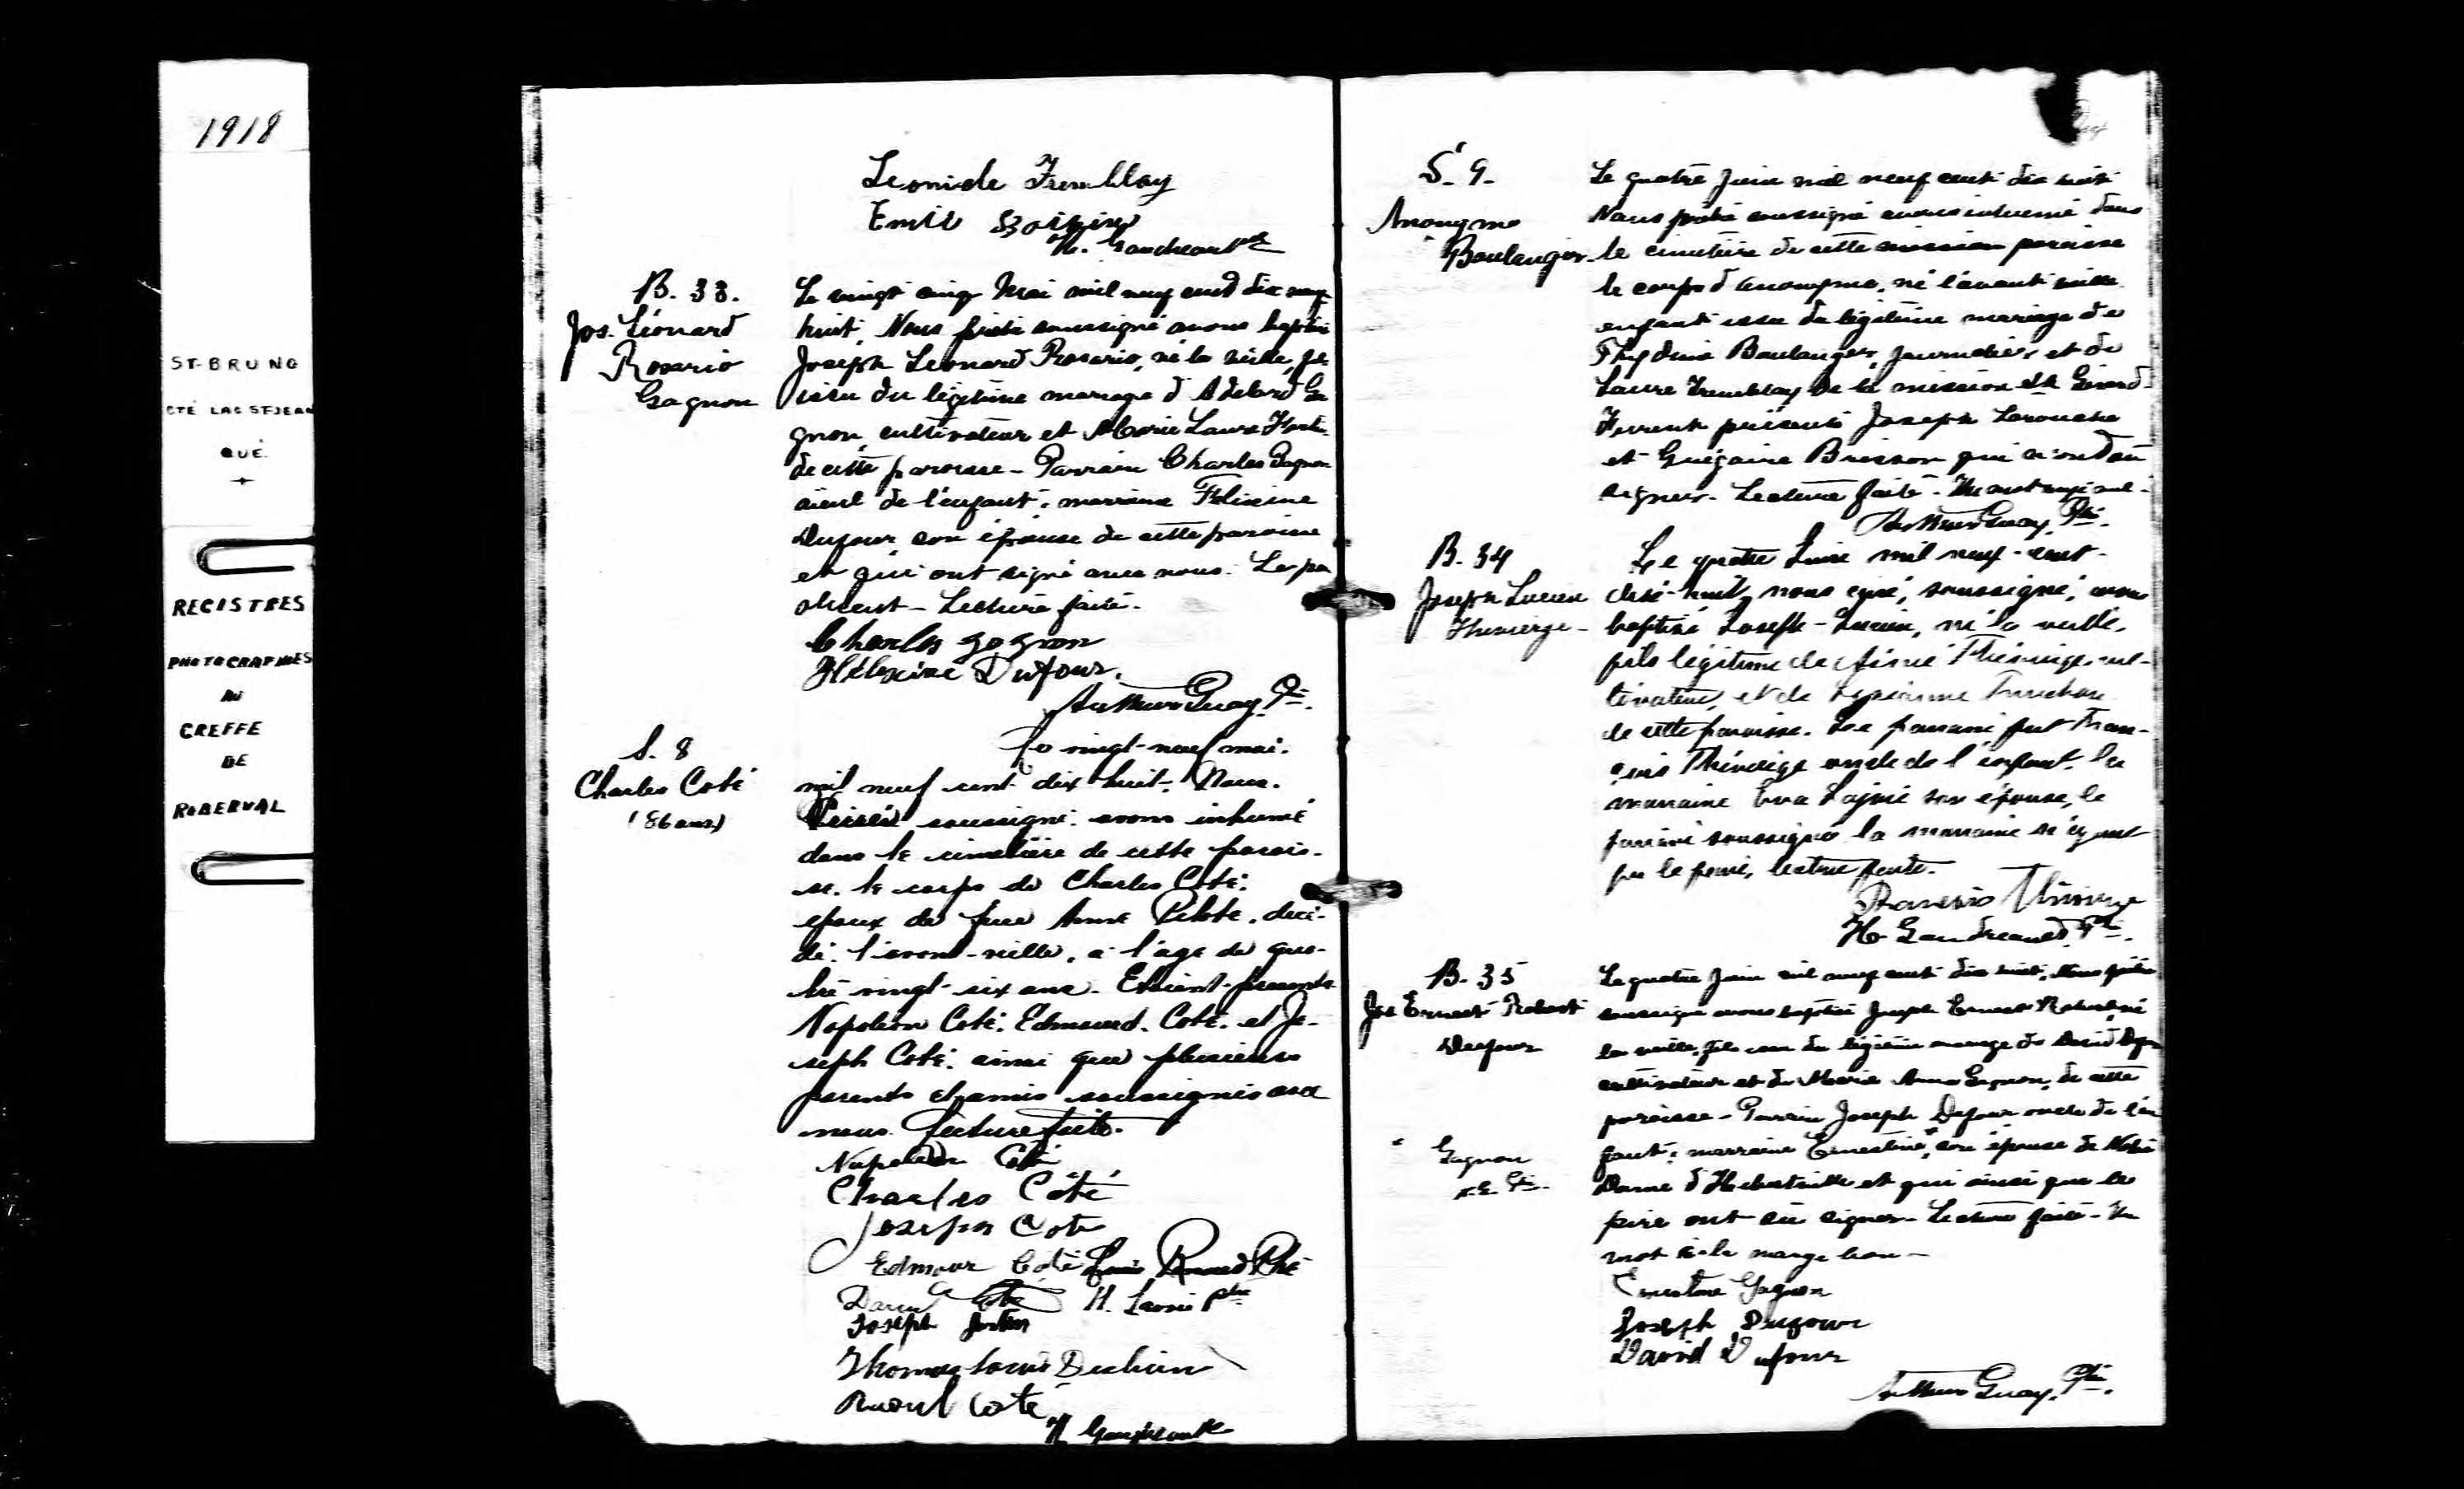 1918
ST-BRUNO
CTÉ LAC ST-JEAN
QUÉ.
REGISTRES
PHOTOGRAPHIÉS
AU
GREFFE
DE
ROBERVAL
Leonide Tremblay
Emile
H. Gaudreault Ptre
B. 33.
Jos. Léonard
Rosario
Gagnon
Le vingt cinq Mai mil neuf cent dix
huit, Nous prêtre soussigné avons baptisé
Joseph Leonard Rosario, né la veille, fils
issu du légitime mariage d'Adelard Ga
gnon, cultivateur et Marie Laure
de cette paroisse - Parrain Charles Gagnon
aieul de l'enfant; marraine
Dufour son épouse de cette paroisse
et qui ont signé avec nous. Le père
absent - Lecture faite.
Charles Gagnon
Dufour.
Arthur Guay, Ptre.
S. 8
Charles Coté
(86 ans)
Le vingt-neuf mai.
mil neuf cent dix huit. Nous.
soussigné. avons inhumé
dans le cimetière de cette parois-
se. le corps de Charles Coté.
époux de feue Anne Pilote. décé-
dé. l'avant-veille, à l'age de qua-
tre vingt-six ans. Etaient présents
Napoléon Coté. Edmound. Coté. et Jo-
seph Coté. ainsi que plusieurs
parents et amis soussignés avec
nous. Lecture faite.
Napoléon Coté
Charles Côté
Joseph Coté
Edmour Coté
Coté H. Ptre
Joseph
Thomas Louis
Raoul Coté
H. Gaudreault
S. 9.
Anonyme
Boulanger
Le quatre Juin mil neuf cent dix huit
Nous prêtre soussigné avons inhumé dans
le cimetière de cette mission paroisse
le corps d'anonyme, né l'avant veille
enfant issu du légitime mariage de
Boulanger, journalier et de
Laure Tremblay de la mission St Gérard.
Furent présents Joseph Larouche
et Brisson qui n'ont su
signer. Lecture faite. Un mot
Arthur Guay, Ptre.
B. 34
Joseph Lucien
Thivierge
Le quatre Juin mil neuf-cent-
dix-huit, nous curé, soussigné, avons
baptisé Joseph-Lucien, né la veille,
fils légitime de Aimé Thivierge, cul-
tivateur, et de
de cette paroisse. Le parrain fut Fran-
çois Thivierge oncle de l'enfant. la
marraine Eva Lajoie son épouse, le
parrain soussigné la marraine n'ayant
pu le faire, lecture faite.
Thivierge
H. Gaudreault Ptre.
B. 35
Jos Ernest Robert
Dufour
Le quatre Juin mil neuf cent dix huit, Nous prêtre
soussigné avons baptisé Joseph Ernest Robert né
la veille, fils issu du légitime mariage de David Dufour
cultivateur et de Marie Anna Gagnon, de cette
paroisse - Parrain Joseph Dufour oncle de l'en
fant; marraine Ernestine, son épouse de Notre
Dame d'Hébertville et qui ainsi que le
père ont su signer. Lecture faite. Un
mot à la marge bon -
Gagnon
Ernestine Gagnon
Joseph Dufour
David Dufour
Arthur Guay, Ptre.